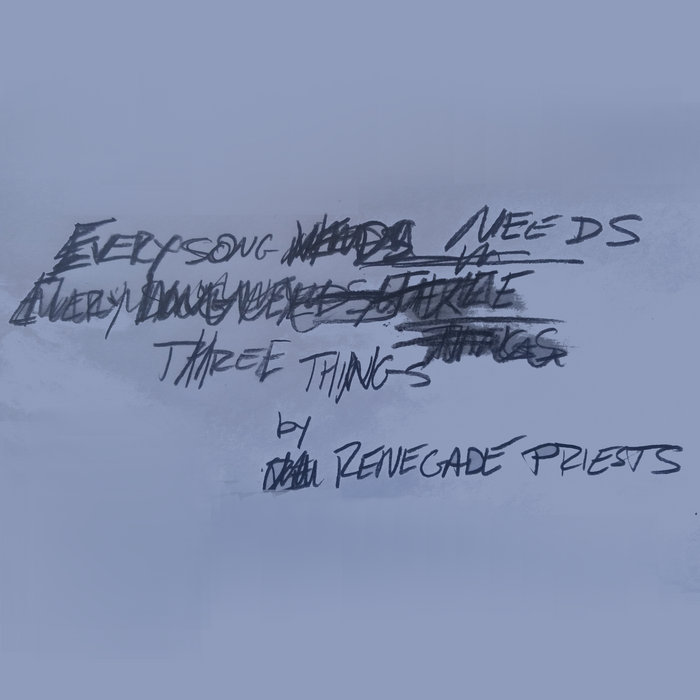 EVERY SONG NEEDS
THREE THINGS
by
RENEGADE PRIESTS